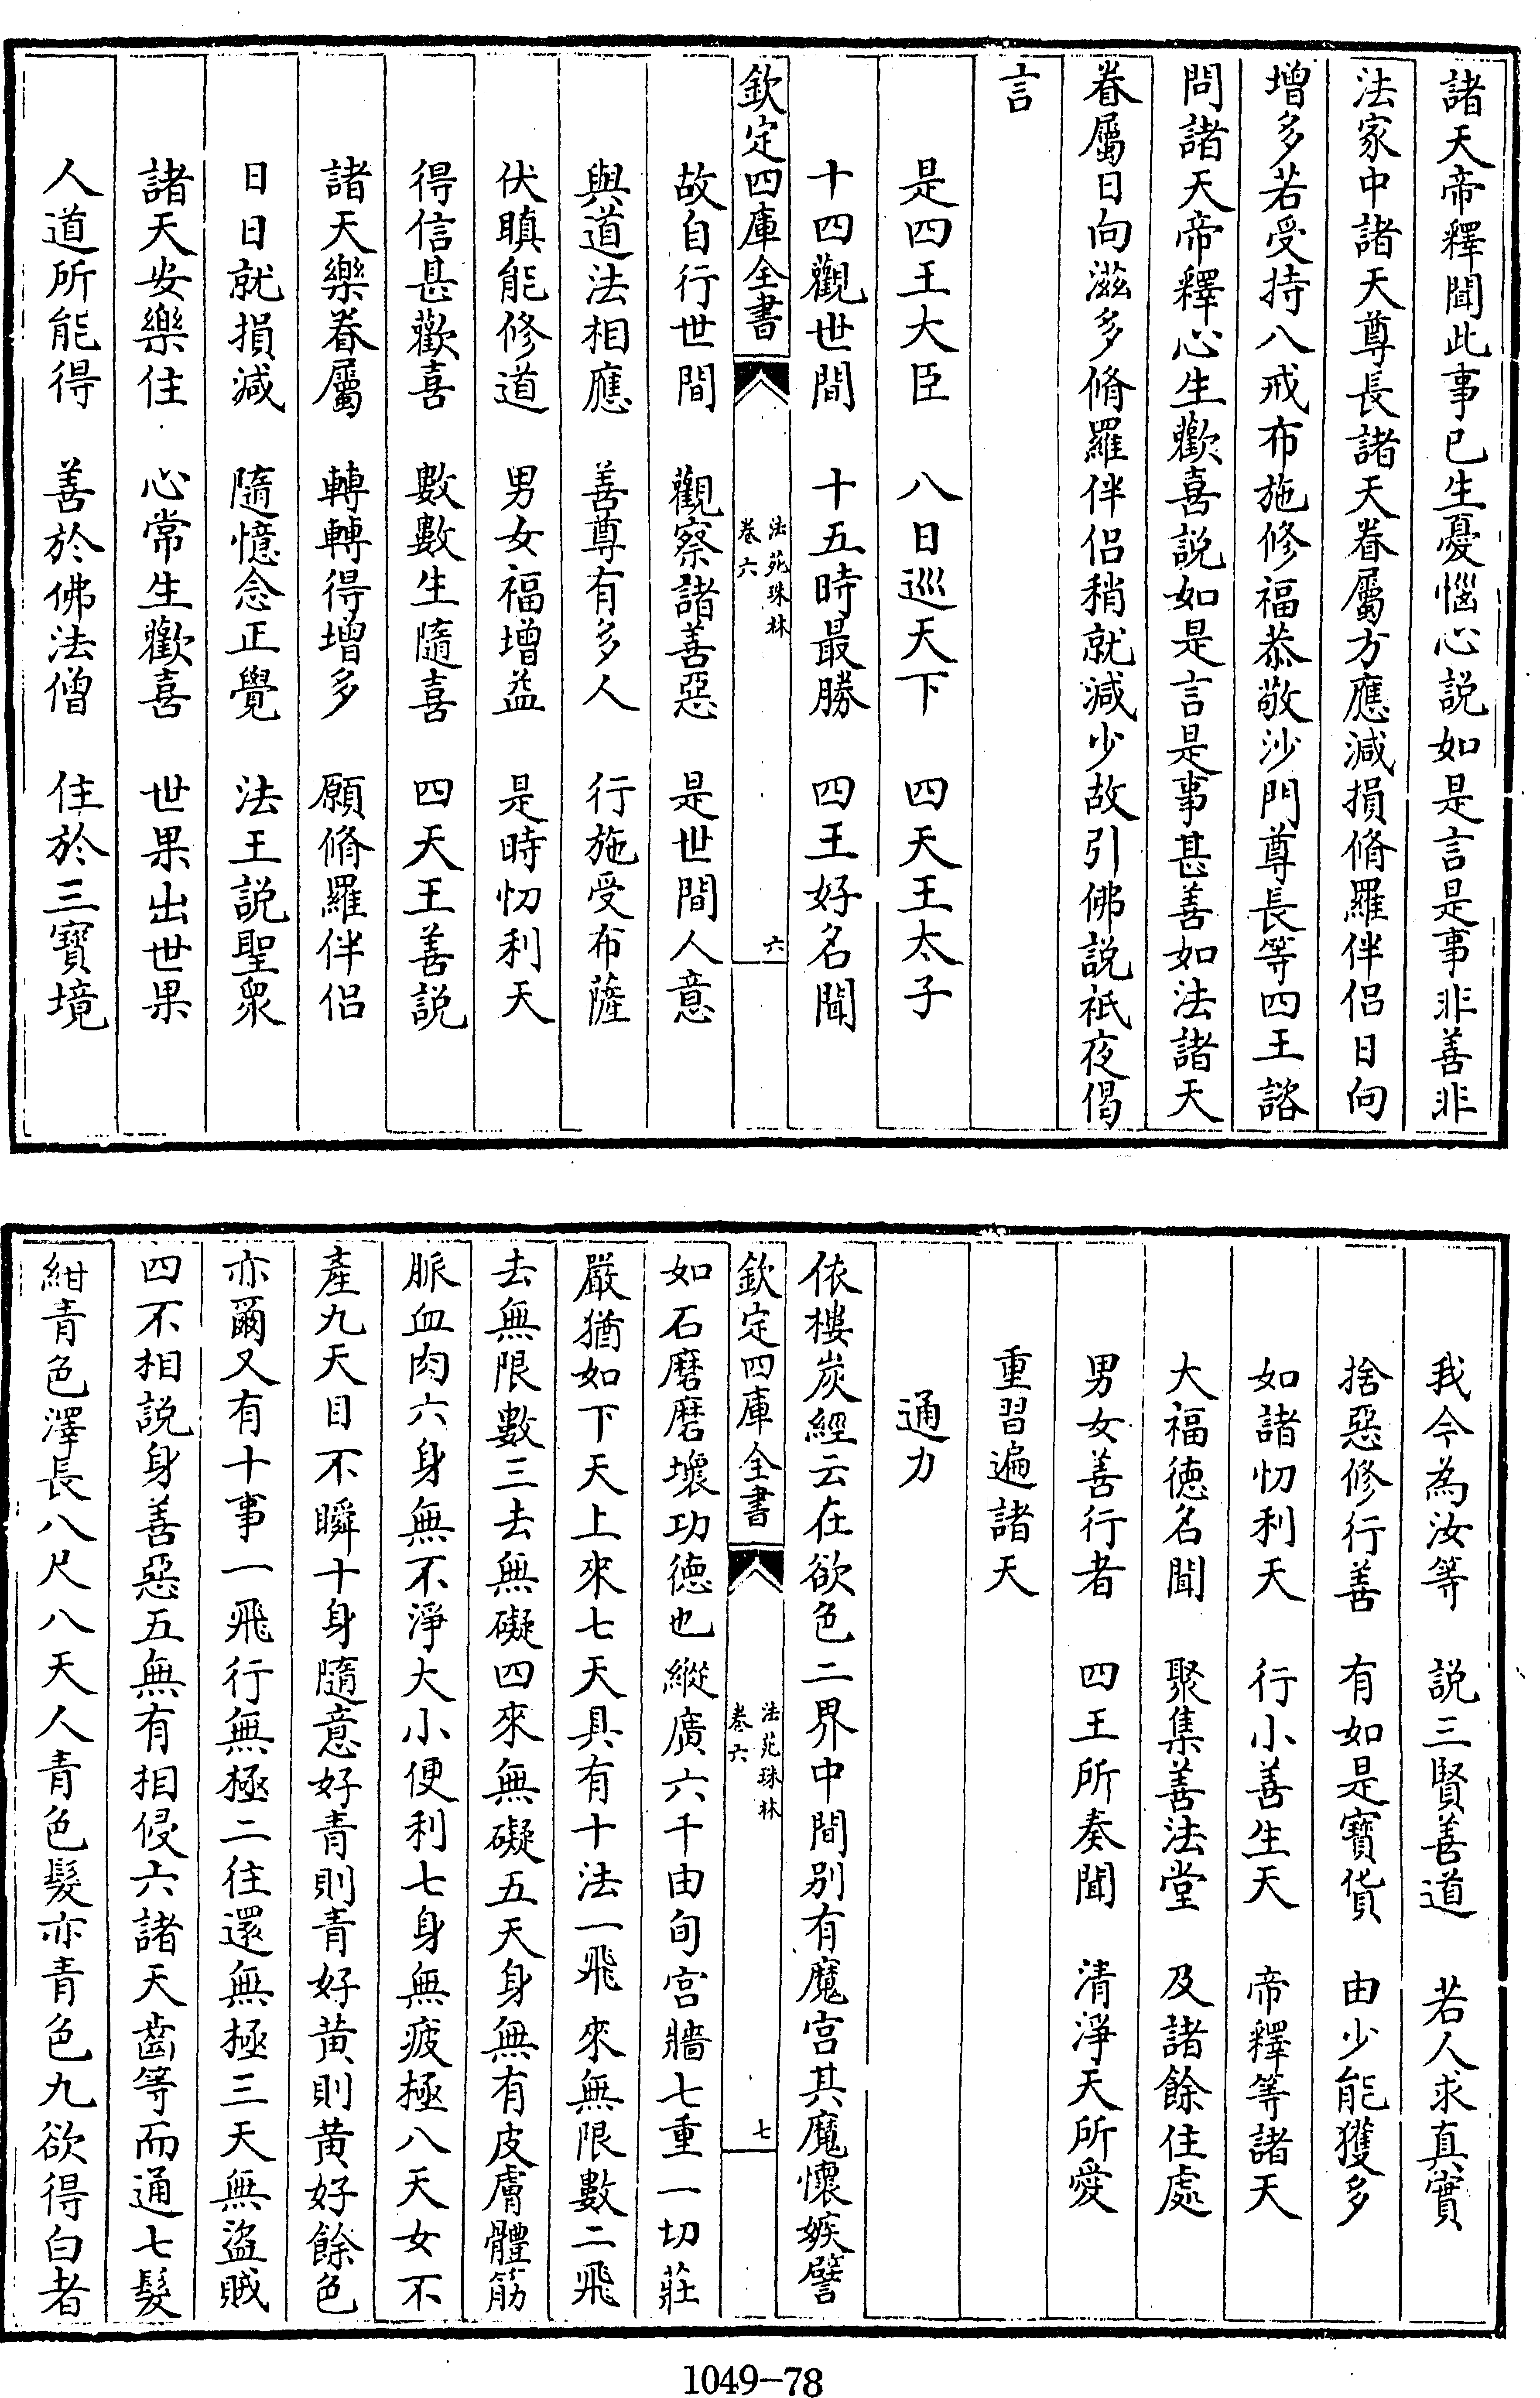 諸天帝釋聞此事已生憂惱心説如是言是事非善非
法家中諸天尊長諸天眷屬方應減損脩羅伴侣日向
增多若受持八戒布施修福恭敬沙門尊長等四王諮
問諸天帝釋心生歡喜説如是言是事甚善如法諸天
眷屬日向滋多脩羅伴侣稍就減少故引佛説祇夜偈
言
是四王大臣　八日巡天下　四天王太子
十四觀世間　十五時最勝　四王好名聞
欽定四庫全書
法苑珠林
卷六
六
故自行世間　觀察諸善惡　是世間人意
與道法相應　善尊有多人　行施受布薩
伏瞋能修道　男女福增益　是時忉利天
得信甚歡喜　數數生隨喜　四天王善説
諸天樂眷屬　轉轉得增多　願脩羅伴侣
日日就損減　隨憶念正覺　法王説聖衆
諸天安樂住　心常生歡喜　世果出世果
人道所能得　善於佛法僧　住於三寶境
我今為汝等　説三賢善道　若人求真實
捨惡修行善　有如是寶貨　由少能獲多
如諸忉利天　行小善生天　帝釋等諸天
大福徳名聞　聚集善法堂　及諸餘住處
男女善行者　四王所奏聞　清淨天所愛
重習遍諸天
通力
依樓炭經云在欲色二界中間别有魔宫其魔懷嫉譬
欽定四庫全書
法苑珠林
卷六
七
如石磨磨壞功徳也縱廣六千由旬宫牆七重一切莊
嚴猶如下天上來七天具有十法一飛來無限數二飛
去無限數三去無礙四來無礙五天身無有皮膚體筋
脈血肉六身無不淨大小便利七身無疲極八天女不
產九天目不瞬十身隨意好青則青好黄則黄好餘色
亦爾又有十事一飛行無極二往還無極三天無盜賊
四不相説身善惡五無有相侵六諸天齒等而通七髮
紺青色澤長八尺八天人青色髮亦青色九欲得白者
1049-78